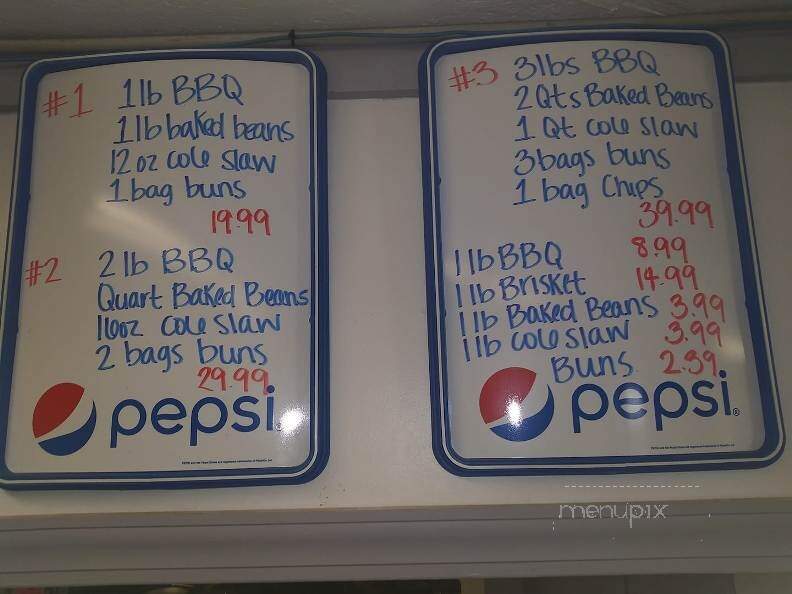 #1 1lb BBQ
1 lb baked beans
12 oz cole slaw
1 bag buns
19.99
#2 2 lb BBQ
Quart Baked Beans
16oz cole slaw
2 bags buns
29.99
pepsi
#3 3lbs BBQ
2 Qts Baked Beans
1 Qt cole slaw
3 bags buns
1 bag Chips
39.99
1 lb BBQ 8.99
1 lb Brisket 14.99
1 lb Baked Beans 3.99
1 lb cole slaw 3.99
Buns 2.39
pepsi
menupix